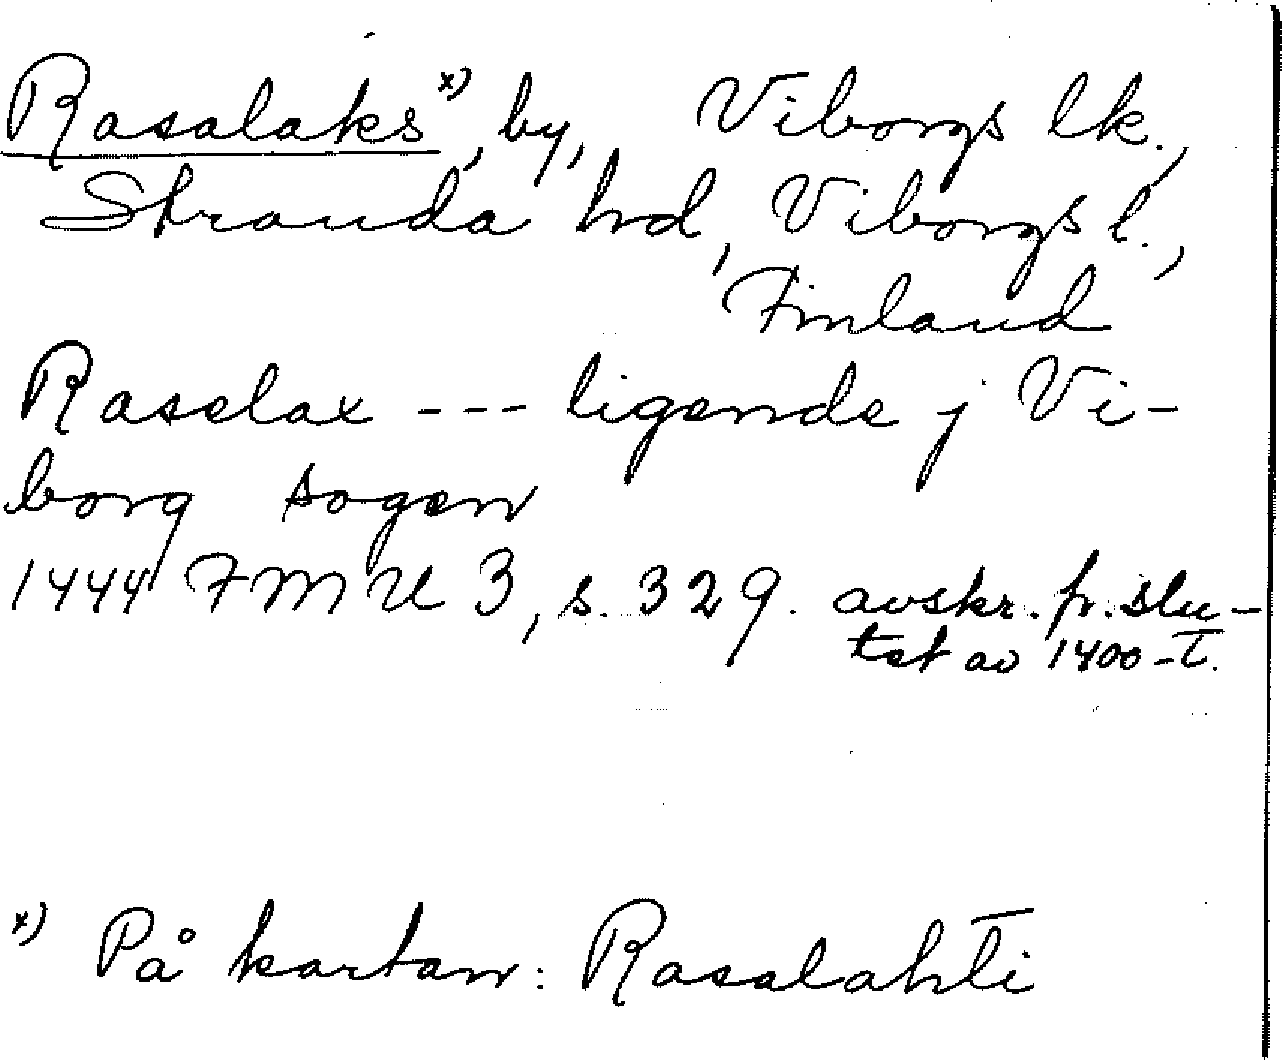 Rasalaks x), by, Viborgs lk.,
Stranda hd, Viborgs l.,
Finland
Raselax --- ligende j Vi-
borg sogen
1444 FMU 3, s. 329. avskr. fr. slu-
tet av 1400-t.
x) På kartan: Rasalahti